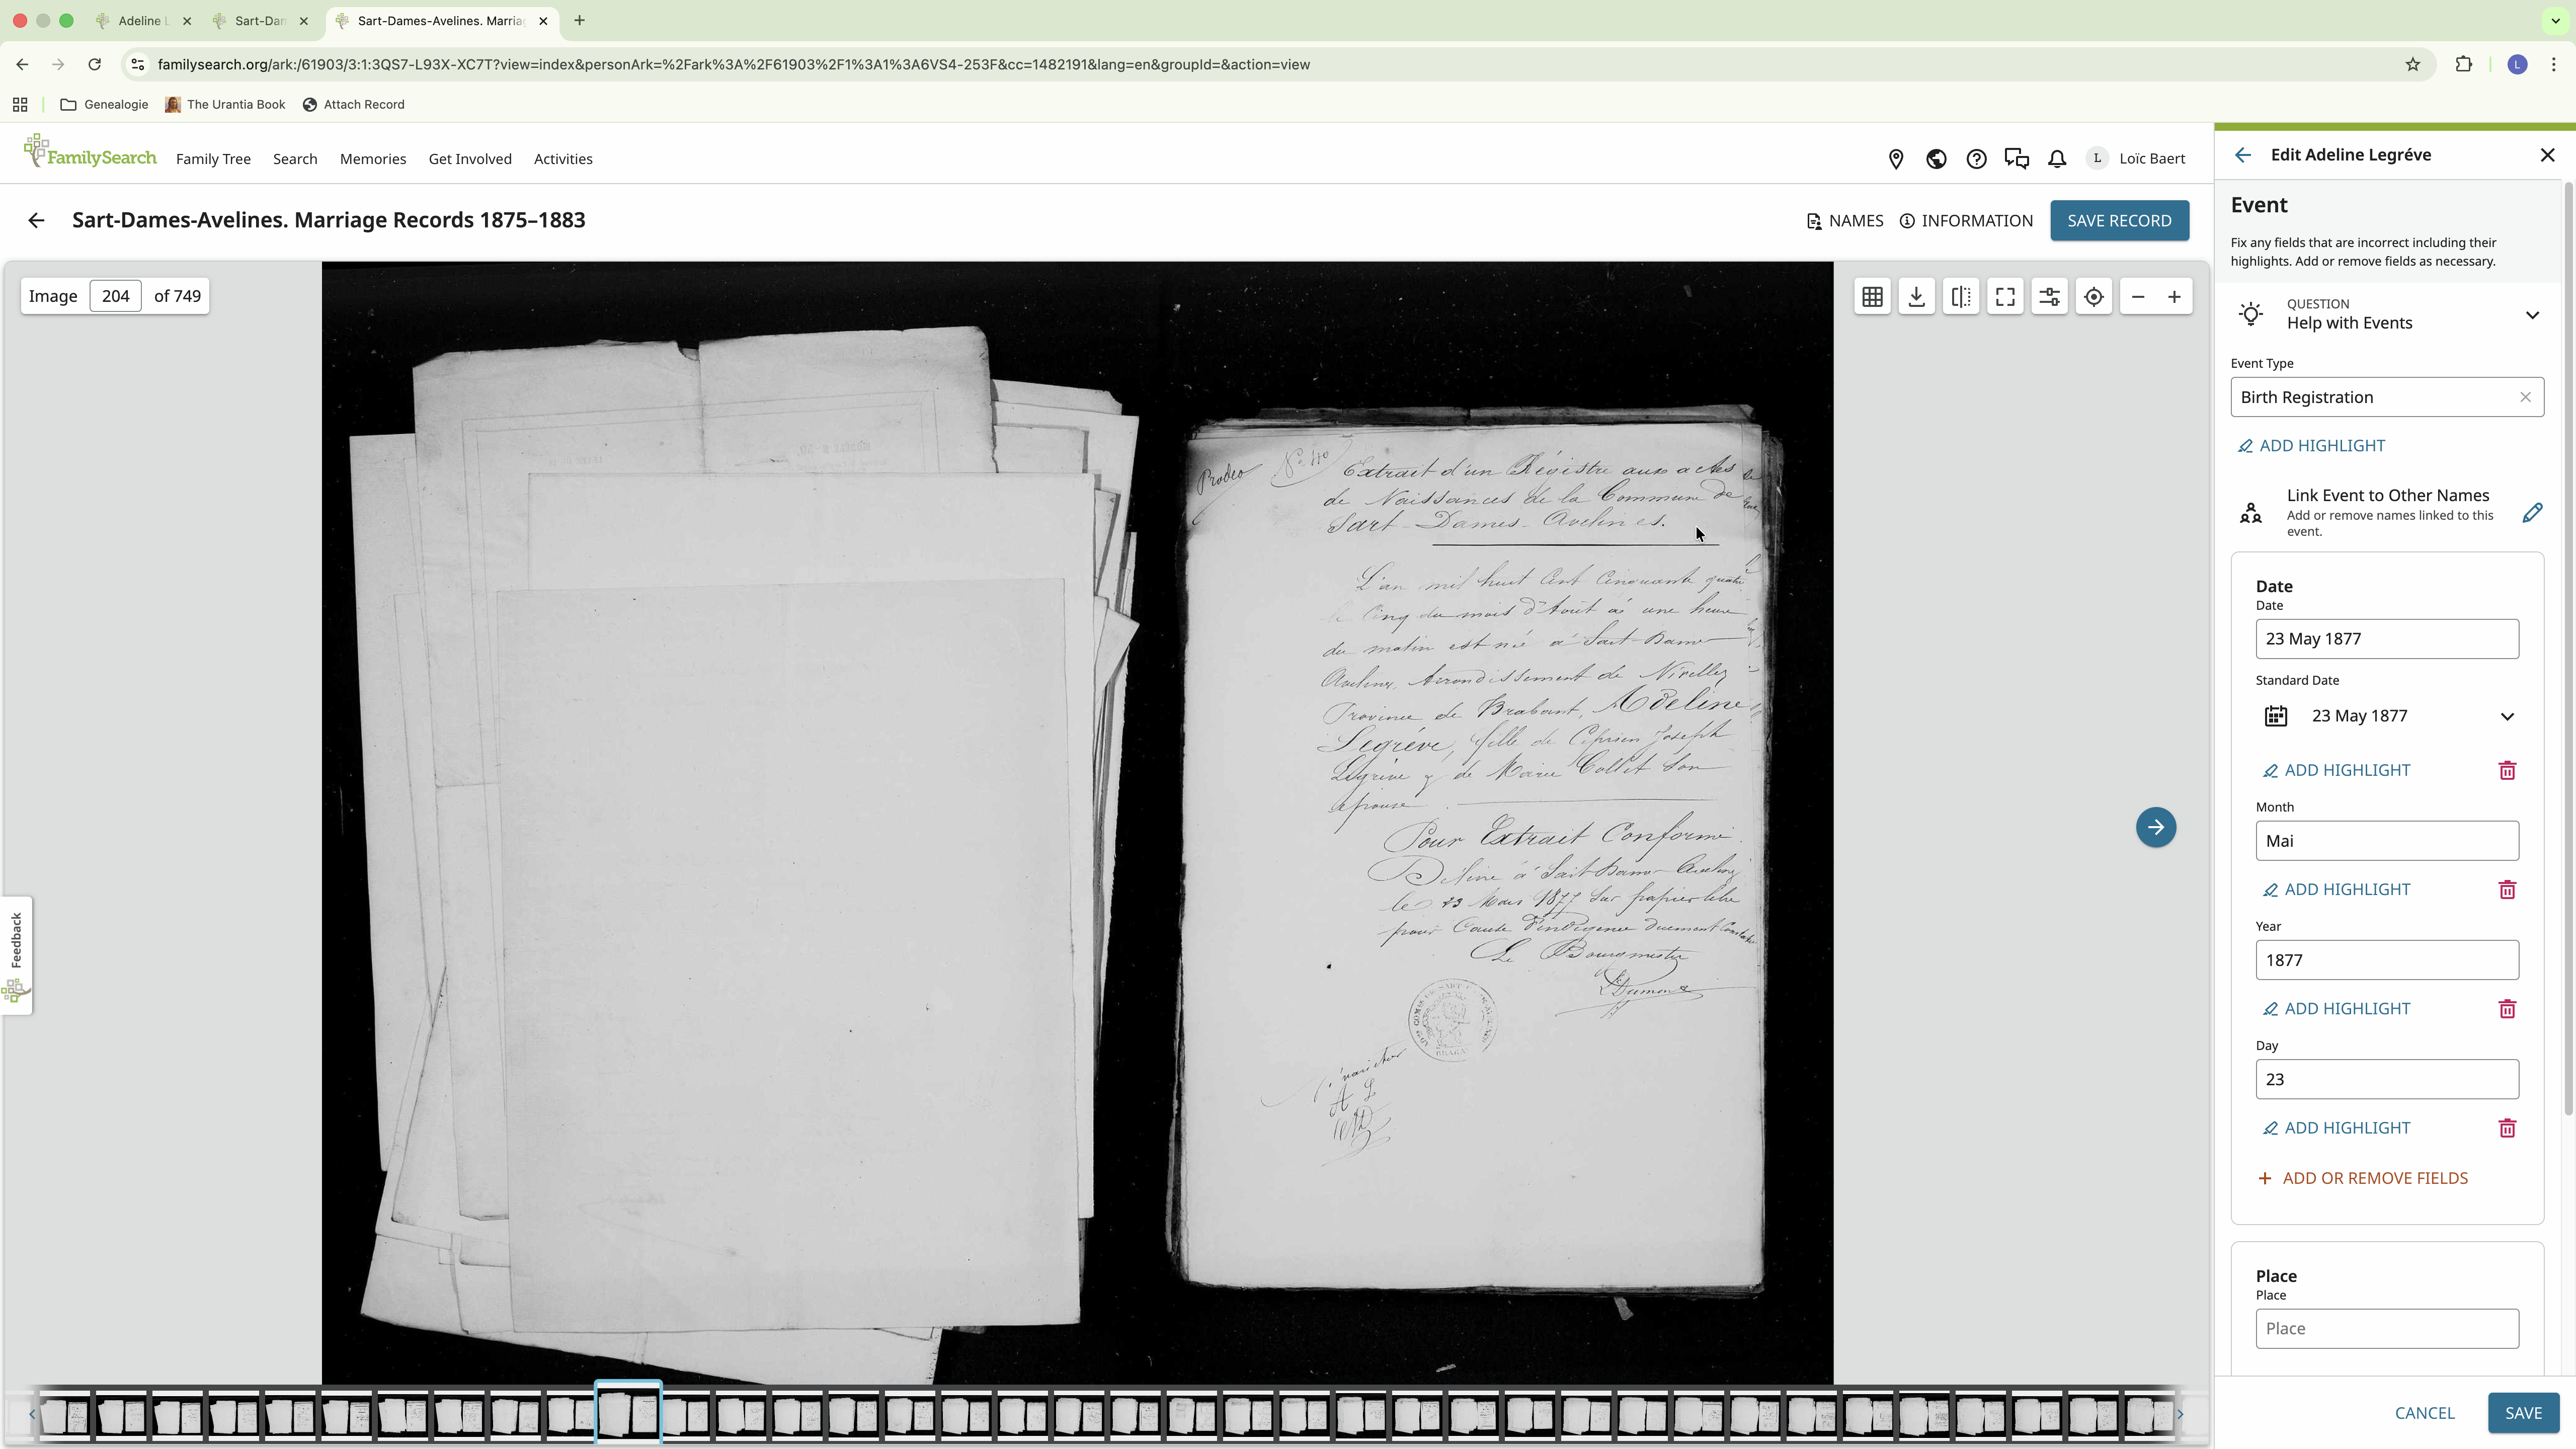 Adeline L
Sart-Dan
Sart-Dames-Avelines. Marria
familysearch.org/ark:/61903/3:1:3QS7-L93X-XC7T?view=index&personArk=%2Fark%3A%2F61903%2F1%3A1%3A6VS4-253F&cc=1482191&lang=en&groupId=&action=view
L
Genealogie
The Urantia Book
Attach Record
FamilySearch
Family Tree
Search
Memories
Get Involved
Activities
L
Loïc Baert
Sart-Dames-Avelines. Marriage Records 1875–1883
NAMES
INFORMATION
SAVE RECORD
Image 204 of 749
Prodeo
Extrait d'un Régistre aux actes
de Naissances de la Commune de
Sart-Dames-Avelines.
L'an mil huit Cent Cinquante quatre
le Cinq du mois d'Août à une heure
du matin est né à Sart-Dames
Avelines, Arrondissement de Nivelles
Province de Brabant, Adeline
Legréve, fille de Ciprien Joseph
Legréve & de Marie Collet son
épouse.
Pour Extrait Conforme.
Délivré à Sart-Dames-Avelines
le 23 Mars 1877 sur papier libre
pour Cause d'indigence duement Constatée
Le Bourgmestre
LDumont
A L
Feedback
Edit Adeline Legréve
Event
Fix any fields that are incorrect including their
highlights. Add or remove fields as necessary.
QUESTION
Help with Events
Event Type
Birth Registration
ADD HIGHLIGHT
Link Event to Other Names
Add or remove names linked to this
event.
Date
Date
23 May 1877
Standard Date
23 May 1877
ADD HIGHLIGHT
Month
Mai
ADD HIGHLIGHT
Year
1877
ADD HIGHLIGHT
Day
23
ADD HIGHLIGHT
+ ADD OR REMOVE FIELDS
Place
Place
Place
CANCEL
SAVE